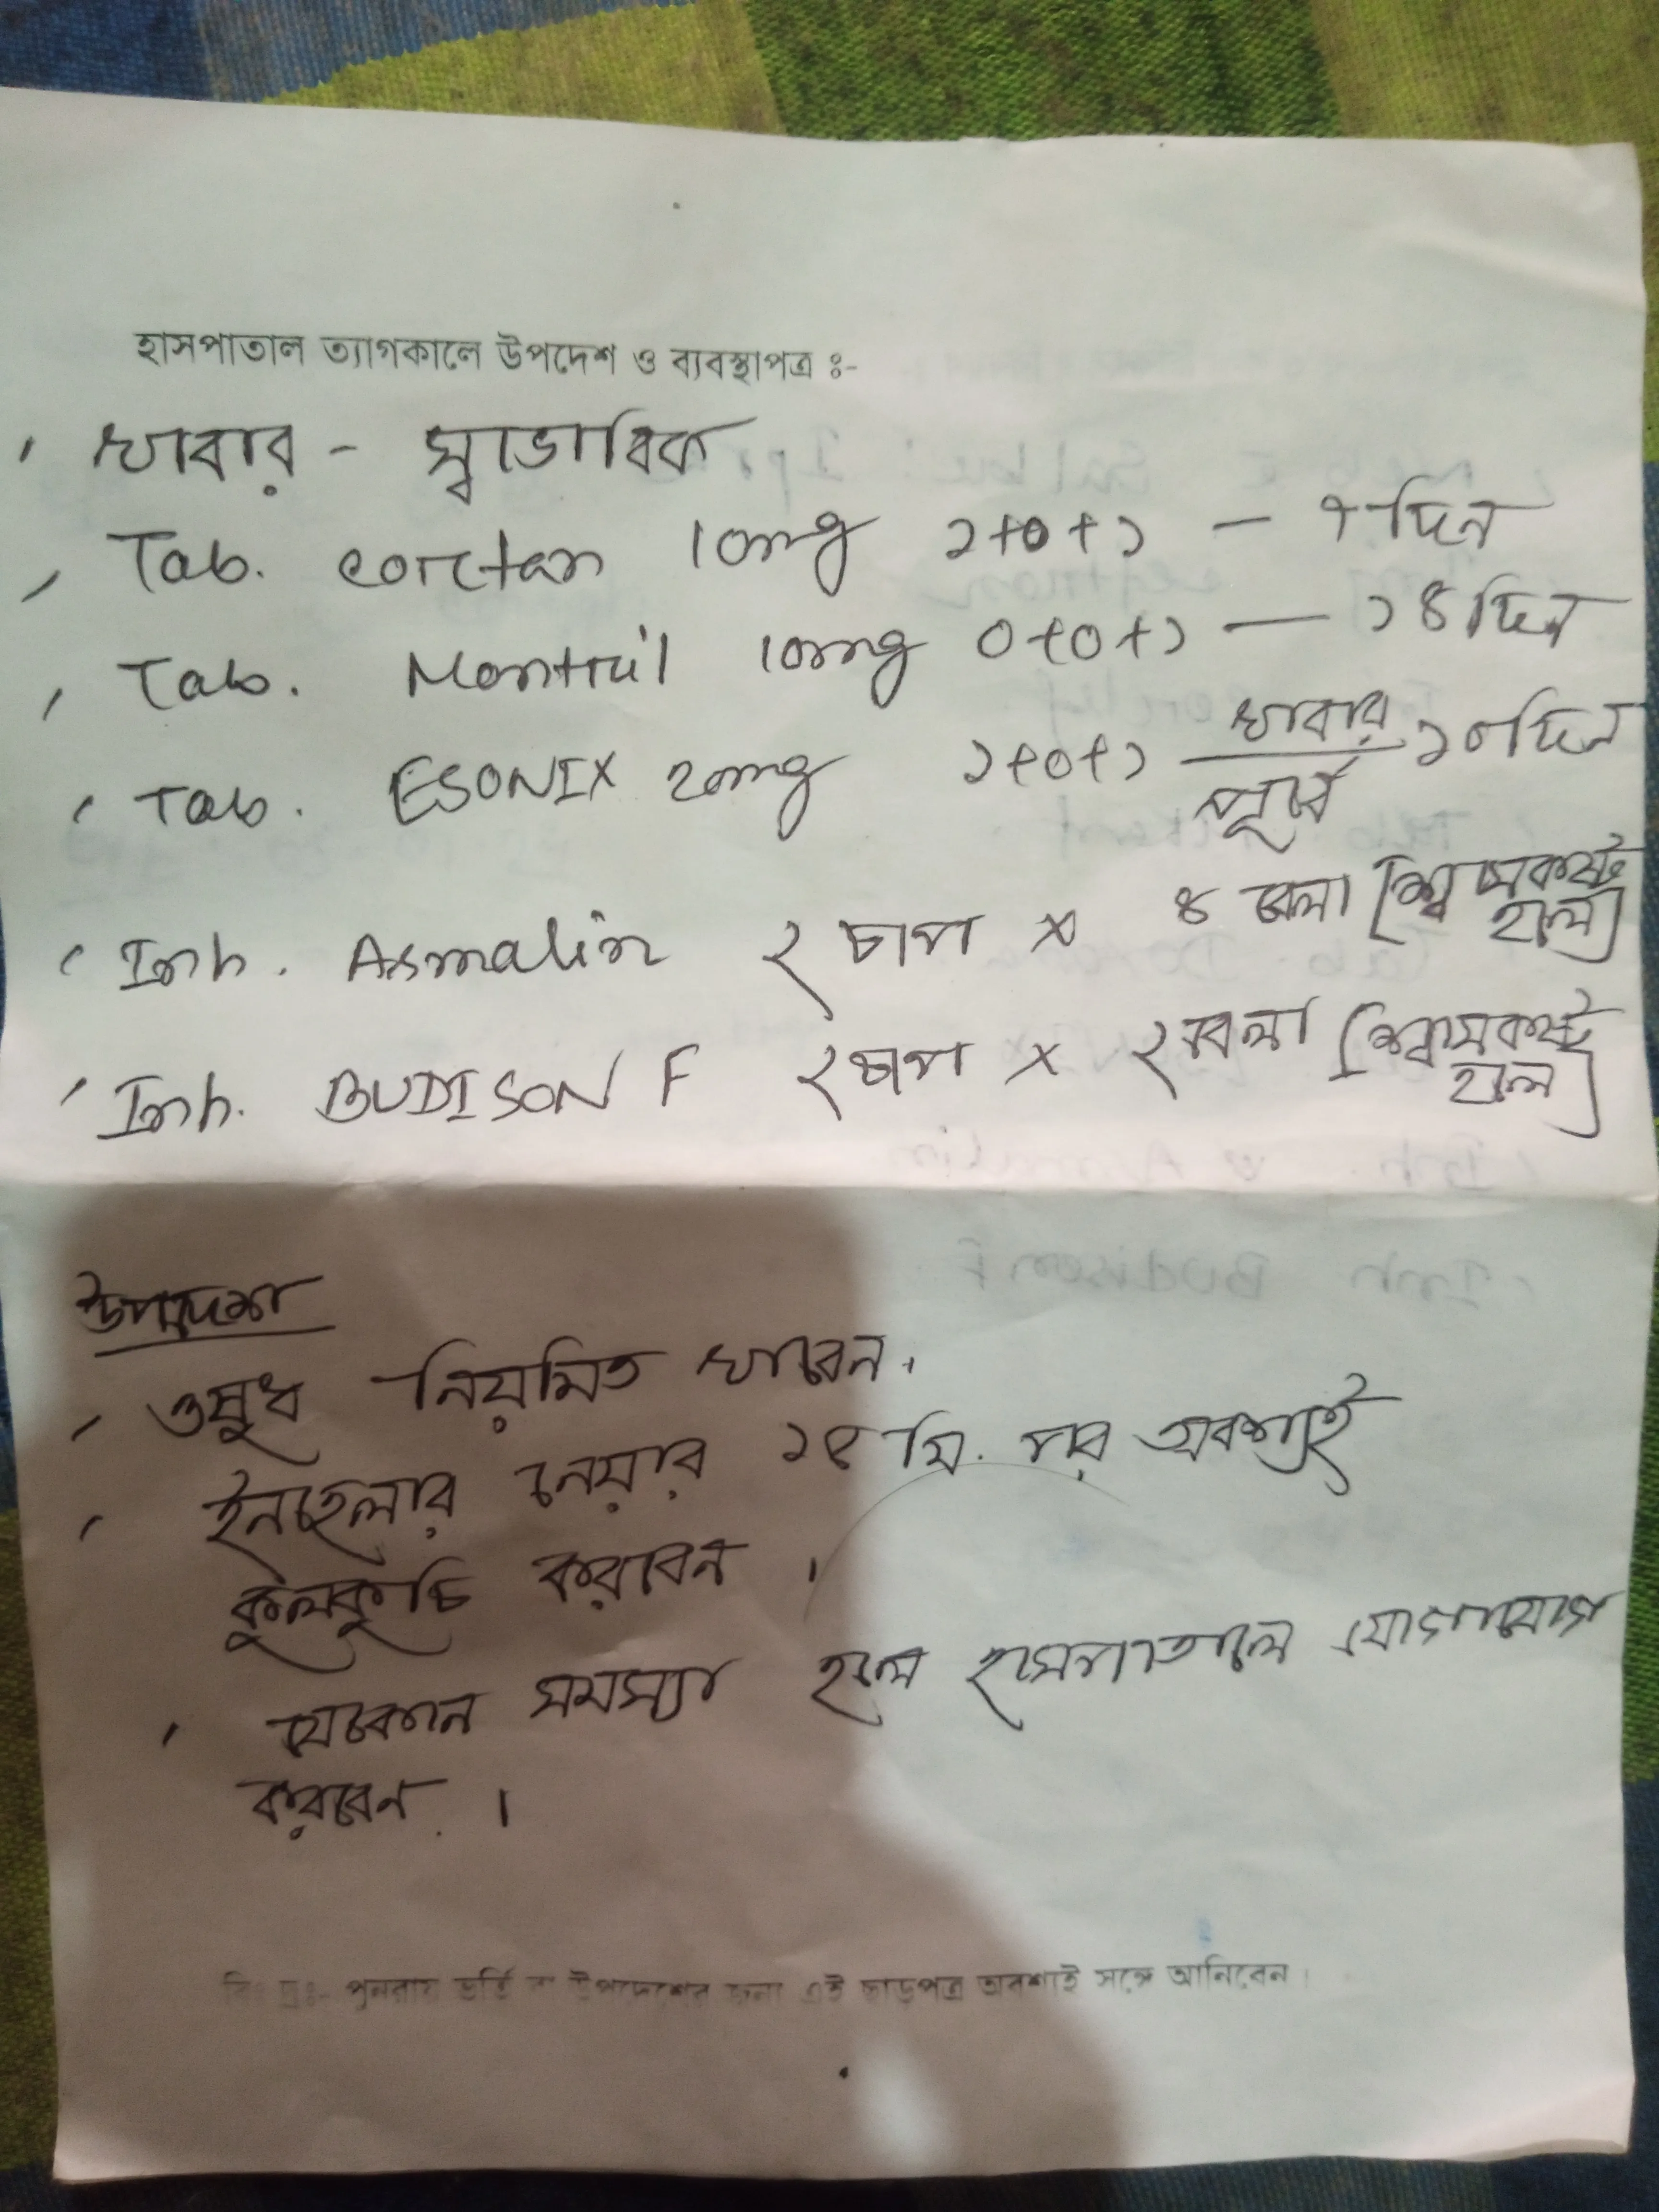 হাসপাতাল ত্যাগকালে উপদেশ ও ব্যবস্থাপত্র ঃ-
খাবার - স্বাভাবিক
Tab. cortan 10mg ১+০+১ — ৭দিন
Tab. Montril 10mg ০+০+১ — ১৪দিন
Tab. ESONIX 20mg ১+০+১ খাবার পূর্বে ১০দিন
Inh. Asmalin ২ চাপ × ৪ বেলা [শ্বাসকষ্ট হলে]
Inh. BUDISON F ২চাপ × ২বেলা [শ্বাসকষ্ট হলে]
উপদেশ
ওষুধ নিয়মিত খাবেন।
ইনহেলার নেয়ার ১৫ মি. পর অবশ্যই
কুলকুচি করবেন ।
যেকোন সমস্যা হলে হাসপাতালে যোগাযোগ
করবেন ।
বিঃ দ্রঃ- পুনরায় ভর্তি বা উপদেশের জন্য এই ছাড়পত্র অবশ্যই সঙ্গে আনিবেন।